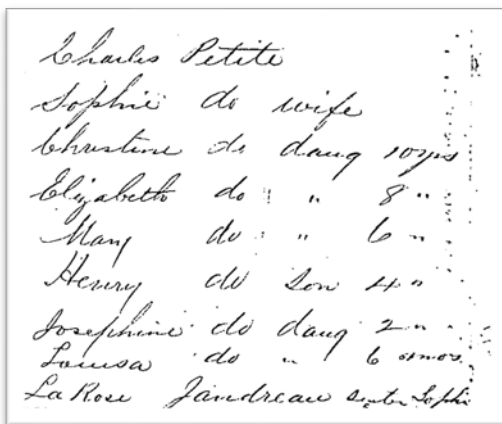 Charles Petite
Sophie do wife
Christine do daug 10 yrs
Elizabeth do " 8 "
Mary do " 6 "
Henry do son 4 "
Josephine do daug 2 "
Louisa do " 6 mos.
La Rose Jandreau sister Sophi